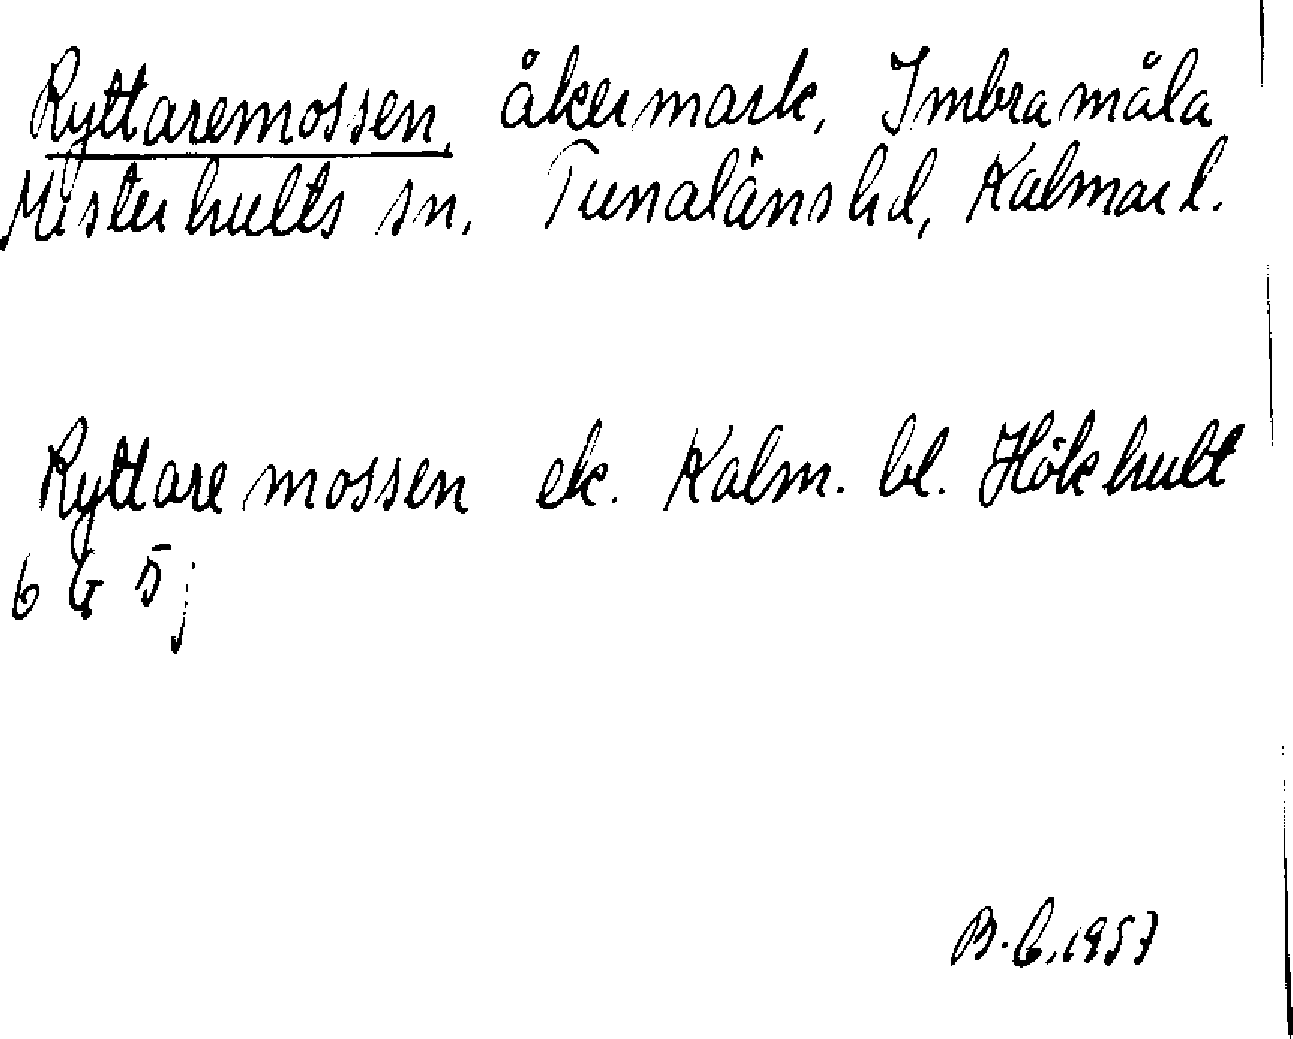 Ryttaremossen, åkermark, Imbramåla
Misterhults sn, Tunaläns hd, Kalmar l.
Ryttaremossen ek. Kalm. bl. Hökhult
6 G 5 j
B. C. 1957